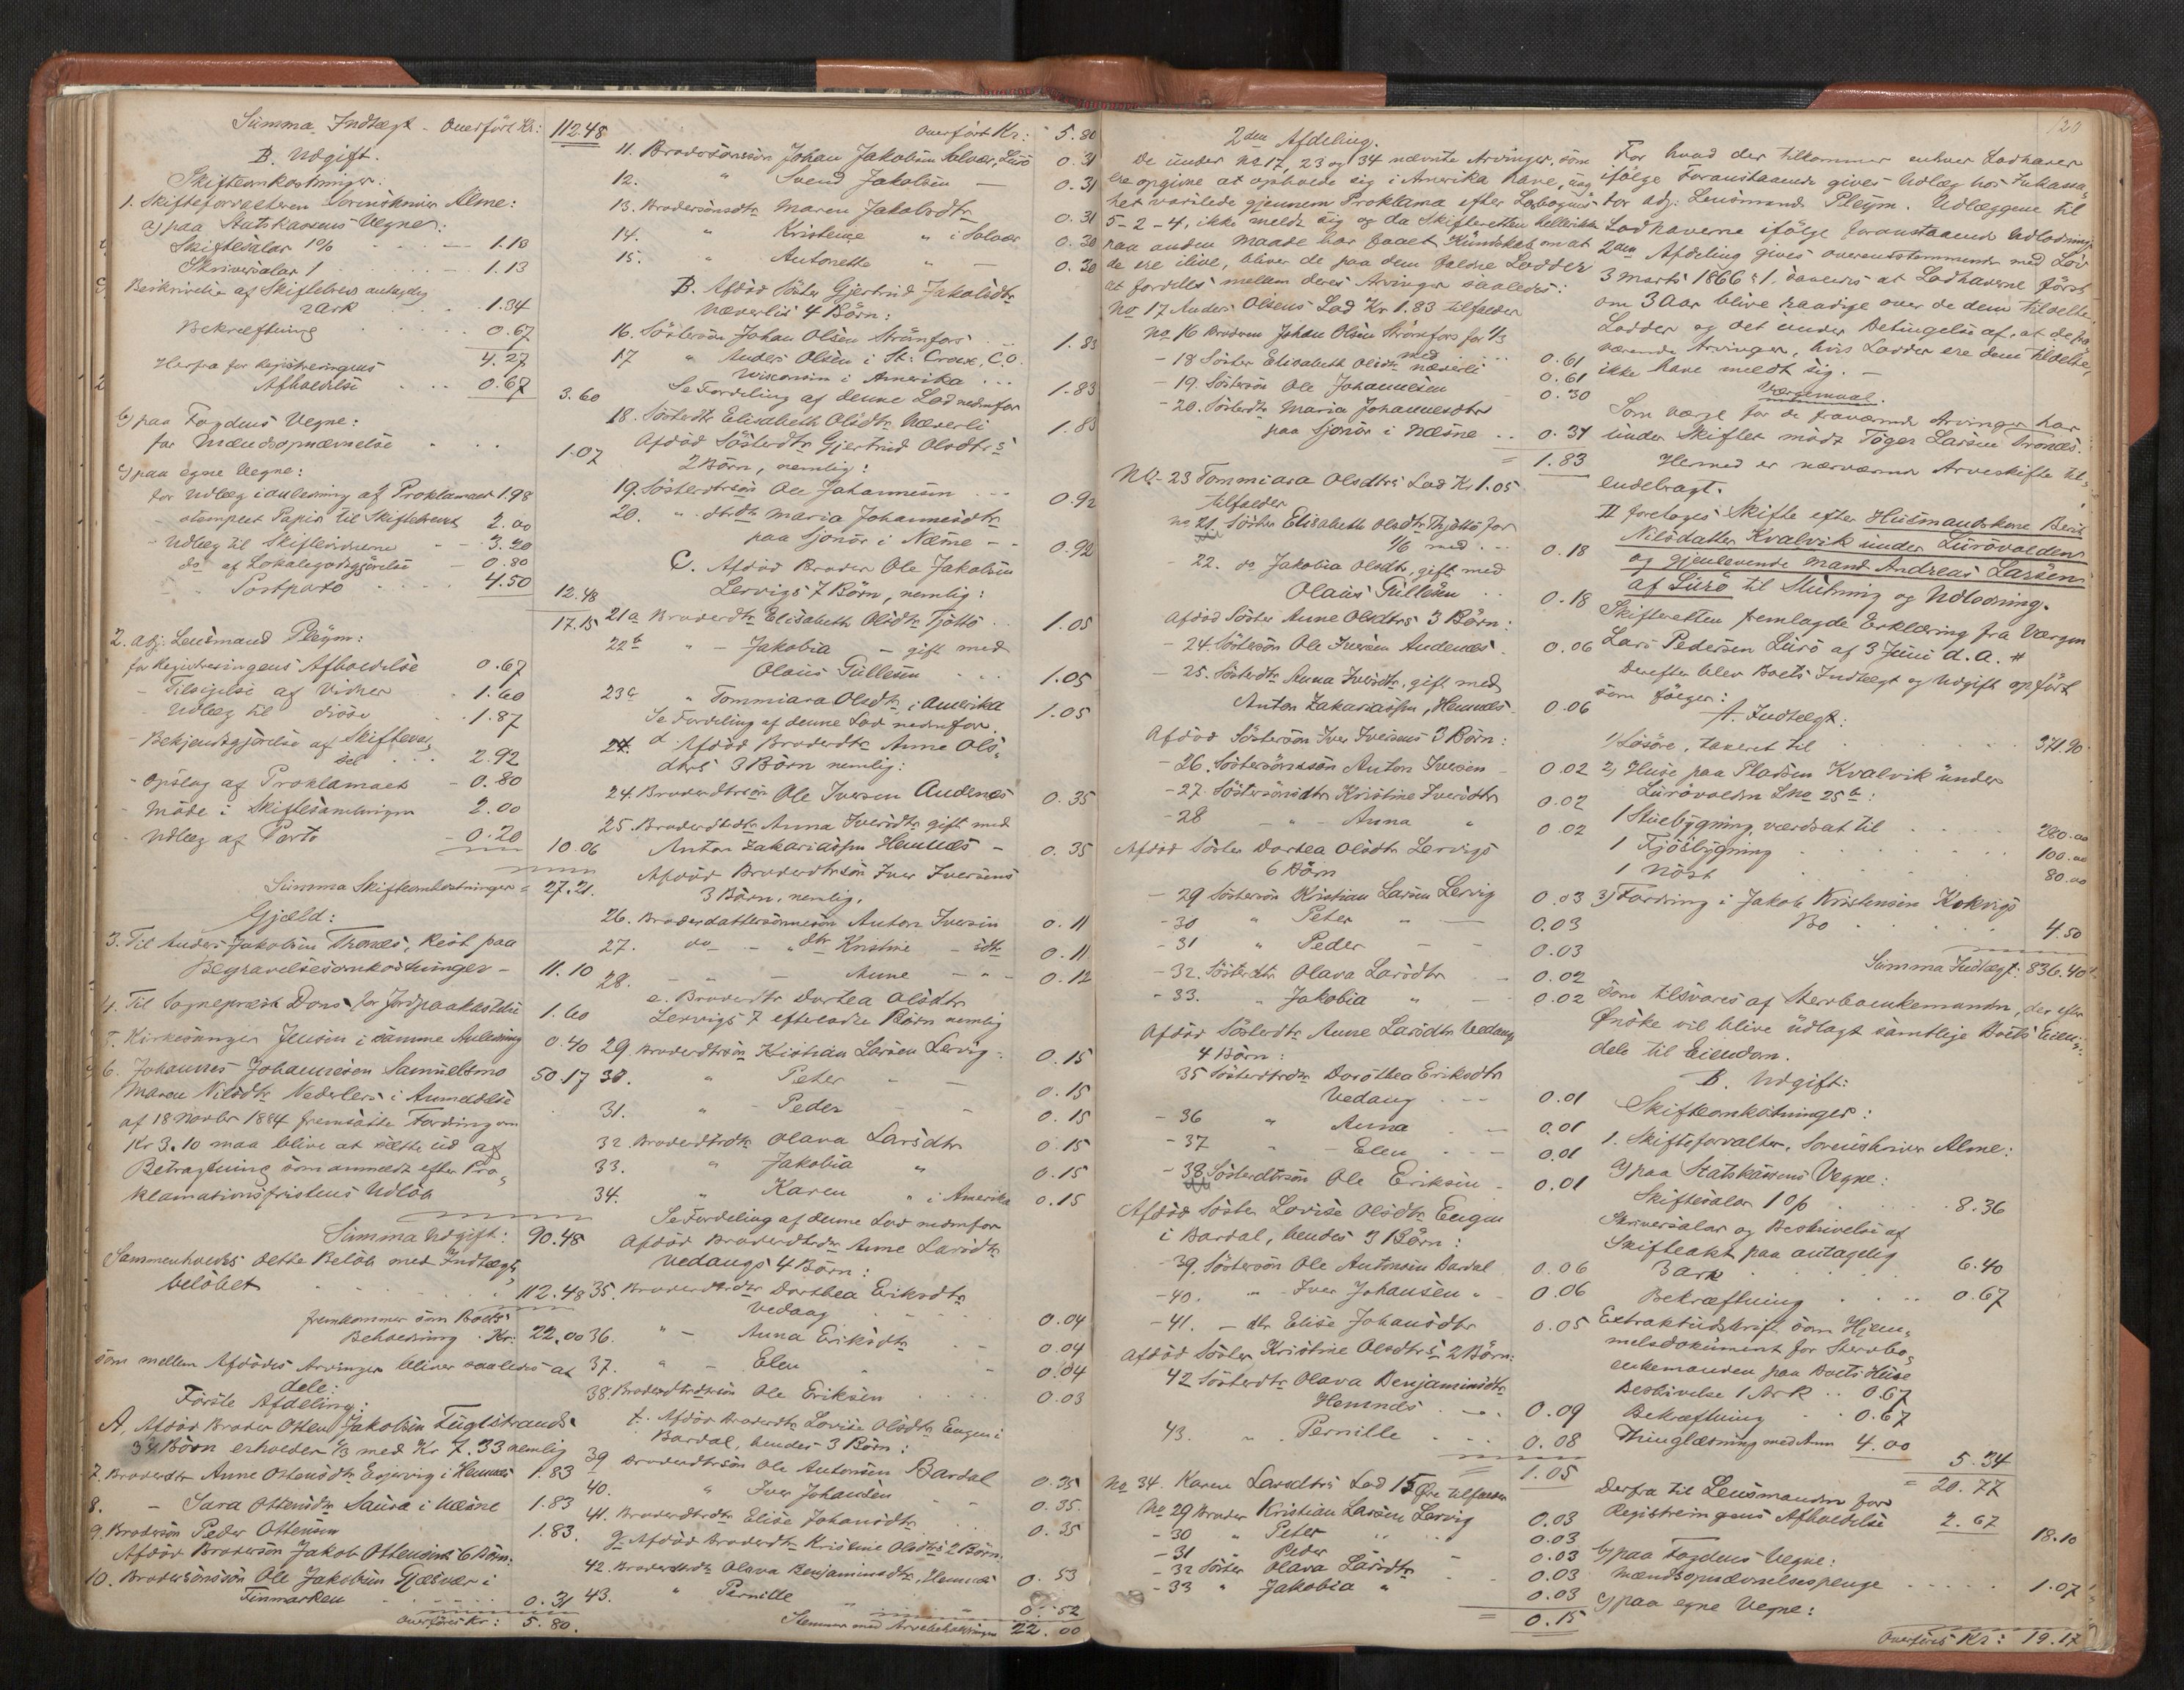 Summa Indtægt - Overført Kr: 112.48
B. Udgift.
Skifteomkostninger:
1. Skifteforvalteren Sorenskriver Alme:
a) paa Statskassens Vegne:
Skiftesalær 1% - 1.13
Skriversalær 1 - 1.13
Beskrivelse af Skiftebrev antagelig
2 Ark 1.34
Bekræftning 0.67
4.27
Herfra for Registreringens
Afholdelse 0.67 3.60
b) paa Fogdens Vegne:
for Mændsopnævnelse 1.07
c) paa egne Vegne:
for Udlæg i anledning af Proklamaet 1.98
- stemplet Papir til Skiftebrevet 2.00
- Udlæg til Skiftevidnerne - 3.20
- do af Lokalegodtgjørelse - 0.80
- Postporto 4.50 12.48
17.15
2. adj. Lensmand Pleym:
for Registreringens Afholdelse 0.67
- Tilsigelse af Vidner 1.60
- Udlæg til disse 1.87
- Bekjendtgjørelse af Skiftevar,
sel 2.92
- Opslag af Proklamaet - 0.80
- Møde i Skiftesamlingen 2.00
- Udlæg af Porto - 0.20 10.06
Summa Skifteomkostninger = 27.21.
Gjæld:
3. Til Anders Jakobsen Thonæs, Rest paa
Begravelsesomkostninger - 11.10
4. Til Sogneprest Dons for Jordpaakastelse 1.60
5. Kirkesanger Jensen i samme Anledning 0.40
6. Johannes Johannesen Samuelsmo 50.17
Maren Nilsdtr Nederlers i Anmeldelse
af 18 Novbr 1884 fremsatte Fordring om
Kr 3.10 maa blive at sætte ud af
Betragtning som anmeldt efter Pro,
klamationsfristens Udløb
Summa Udgift: 90.48
Sammenholdes dette Beløb med Indtægts
beløbet 112.48
fremkommer som Boets
Beholdning Kr: 22.00
som mellem Afdødes Arvinger bliver saaledes at
dele:
Første Afdeling:
A, Afdød Broder Otten Jakobsen Fuglstrands
3/4 Børn erholder 1/3 med Kr 7.33 nemlig
7. Broderdtr Anne Ottensdtr Engervig i Hemnæs 1.83
8. - Sara Ottensdtr Saura i Næsne 1.83
9. Brodersøn Peder Ottensen 1.83.
Afdød Brodersøn Jakob Ottensens 6 Børn.
10. Brodersønssøn Ole Jakobsen Gjæsvær i
Finmarken 0.31
Overføres Kr: 5.80.
Overført Kr: 5.80
11. Brodersønssøn Johan Jakobsen Solvær, Lurø 0.31
12. " Svend Jakobsen — 0.31
13. Brodersønsdtr Maren Jakobsdtr 0.31
14. " Kristense " i Solvær 0.30
15. " Antonette " — 0.30
B. Afdød Søster Gjertrud Jakobsdtr
Næverlis 4 Børn:
16. Søstersøn Johan Olsen Strømfors 1.83
17 " Anders Olsen i St: Croix, C.O.
Wisconsin i Amerika 1.83
Se Fordeling af denne Lod nedenfor
18. Søsterdtr Elisabeth Olsdtr Næverli 1.83
Afdød Søsterdtr Gjertrud Olsdtrs
2 Børn, nemlig:
19. Søsterdtrsøn Ole Johannesen 0.92
20. " dtrdtr Maria Johannesdtr
paa Sjonør i Næsne - 0.92
C. Afdød Broder Ole Jakobsen
Lervigs 7 Børn, nemlig:
21a Broderdtr Elisabeth Olsdtr Tjøttø 1.05
22b " - Jakobia - gift med
Olaus Tullesen 1.05
23c " Tommiara Olsdtr i Amerika 1.05
Se Fordeling af denne Lod nedenfor
24. d Afdød Broderdtr Anne Ols,
dtrs 3 Børn nemlig:
24. Broderdtrsøn Ole Iversen Audenæs 0.35
25. Broderdtrdtr Anna Iversdtr gift med
Anton Zakariassen Hemnæs - 0.35
Afdød Broderdtrsøn Iver Iversens
3 Børn, nemlig.
26. Broderdattersønnesøn Anton Iversen 0.11
27. do - " dtr Kristine - sdtr 0.11
28. - Anne - " - 0.12
e. Broderdtr Dortea Olsdtr
Lervigs 7 efterladte Børn nemlig
29 Broderdtrsøn Kristian Larsen Lervig - 0.15
30. " Peter " - 0.15
31. " Peder - 0.15
32. Broderdtrdtr Olava Larsdtr 0.15
33. " Jakobia " 0.15
34. " Karen " i Amerika 0.15
Se Fordeling af denne Lod nedenfor
Afdød Broderdtrdtr Anne Larsdtr
Vedaags 4 Børn:
35. Broderdtrdtr Dorthea Eriksdtr
Vedaag 0.04
36. " - Anna Eriksdtr 0.04
37. " - Elen 0.04
38. Broderdtrdtrsøn Ole Eriksen 0.03
f. Afdød Broderdtr Lovise Olsdtr Eugen i
Bardal, hendes 3 Børn:
39 Broderdtrsøn Ole Antonsen Bardal 0.35
40. " Iver Johansen 0.35.
41. Broderdtrdtr Elise Johansdtr 0.35
g. Afdød Broderdtr Kristine Olsdtrs 2 Børn.
42. Broderdtrdtr Olava Benjaminsdtr, Hemnæs 0.53
43. " Pernille 0.52
Stemmer med Arvebeholdningen 22.00
2den Afdeling.
De under No 17, 23 og 34 nævnte Arvinger, som
ere opgivne at opholde sig i Amerika have, uag,
tet varslede gjennem Proklama efter Lovbogens
5-2-4, ikke meldt sig og da Skifteretten hellerikke
paa anden Maade har faaet Kundskab om at
de ere ilive, bliver de paa dem faldne Lodder
at fordeles mellem deres Arvinger saaledes:
No 17 Anders Olsens Lod Kr 1.83 tilfalder
No 16 Broderen Johan Olsen Strømfors for 1/3
med 0.61
- 18 Søster Elisabeth Olsdtr Næverli 0.61
- 19. Søstersøn Ole Johannesen 0.30
- 20. Søsterdtr Maria Johannesdtr
paa Sjonør i Næsne 0.31
= 1.83
No - 23 Tommiara Olsdtrs Lod Kr 1.05
tilfalder
No 21. Søster Elisabeth Olsdtr Tjøttø for
1/6 med 0.18
- 22. do Jakobia Olsdtr, gift med
Olaus Tullesen 0.18
Afdød Søster Anne Olsdtrs 3 Børn:
- 24 Søstersøn Ole Iversen Audenæs 0.06
- 25. Søsterdtr Anna Iversdtr, gift med
Anton Zakariassen, Hemnæs 0.06
Afdød Søstersøn Iver Iversens 3 Børn:
- 26. Søstersønssøn Anton Iversen - 0.02
- 27. Søstersønsdtr Kristine Iversdtr 0.02
- 28 - " - Anna " 0.02
Afdød Søster Dortea Olsdtr Lervigs
6 Børn
- 29 Søstersøn Kristian Larsen Lervig 0.03
- 30 " Peter " - 0.03
- 31 " Peder - - 0.03
- 32. Søsterdtr Olava Larsdtr 0.02
- 33. " Jakobia " 0.02
Afdød Søsterdtr Anne Larsdtr Vedaags
4 Børn:
35 Søsterdtrdtr Dorothea Eriksdtr
Vedaag 0.01
- 36 " Anna 0.01
- 37 - Elen 0.01
- 38 Søsterdtrsøn Ole Eriksen - 0.01
Afdød Søster Lovise Olsdtr Eugen
i Bardal, hendes 3 Børn:
- 39. Søstersøn Ole Antonsen Bardal 0.06
- 40. " - Iver Johansen " 0.06
- 41. - dtr Elise Johansdtr 0.05
Afdød Søster Kristine Olsdtrs 2 Børn:
42 Søsterdtr Olava Benjaminsdtr
Hemnæs 0.09
43. " Pernille 0.08
= 1.05
No 34. Karen Larsdtrs Lod 15 Øre tilfalder
No 29 Broder Kristian Larsen Lervig 0.03
- 30 " Peter 0.03
- 31 " Peder - 0.03
- 32 Søster Olava Larsdtr 0.03
- 33 " Jakobia " 0.03
= 0.15
120
For hvad der tilkommer enhver Lodhaver
ifølge Foranstaaende gives Udlæg hos Inkassa,
tor adj. Lensmand Pleym. Udlæggene til
Lodhaverne ifølge foranstaaende Udlodnings
2den Afdeling gives overensstemmende med Lov
3 Marts 1866 § 1, saaledes at Lodhaverne først
om 3 Aar blive raadige over de dem tildelte
Lodder og det under Betingelse af, at de fra,
værende Arvinger, hvis Lodder ere dem tildelte,
ikke have meldt sig. -
Værgemaal.
Som Værge for de fraværende Arvinger har
under Skiftet mødt Tøger Larsen Tronæs.
Hermed er nærværende Arveskifte til,
endebragt.
II foretoges Skifte efter Husmandskone Berit
Nilsdatter Kvalvik under Lurøvolden
og gjenlevende Mand Andreas Larsen
af Lurø til Slutning og Udlodning.
Skifteretten fremlagde Erklæring fra Værgen
Lars Pedersen Lurø af 3 Juni d.A. #
Derefter blev Boets Indtægt og Udgift opført
som følger:
A. Indtægt:
1) Løsøre, taxeret til 371.90
2) Huse paa Pladsen Kvalvik under
Lurøvolden Lno 25b:
1 Stuebygning, værdsat til 280.00
1 Fjøsbygning 100.00
1 Nøst 80.00
3) Fordring i Jakob Kristensen Kokvigs
Bo 4.50
Summa Indtægt: 836.40
som tilsvares af Stervboenkemanden, der efter
Ønske vil blive udlagt samtlige Boets Eien,
dele til Eiendom.
B. Udgift:
Skifteomkostninger:
1. Skifteforvalter, Sorenskriver Alme:
a) paa Statskassens Vegne:
Skiftesalær 1% 8.36
Skriversalær og Beskrivelse af
Skifteakt paa antagelig
3 Ark 6.40
Bekræftning 0.67
Extraktudskrift som Hjem,
melsdokument for Stervbo,
enkemanden paa Boets Huse
Beskrivelse 1 Ark 0.67
Bekræftning 0.67
Thinglæsning med Ann 4.00
5.34
= 20.77
Derfra til Lensmanden for
Registreringens Afholdelse 2.67
18.10
b) paa Fogdens Vegne:
Mændsopnævnelsespenge 1.07
c) paa egne Vegne:
Overføres Kr: 19.17